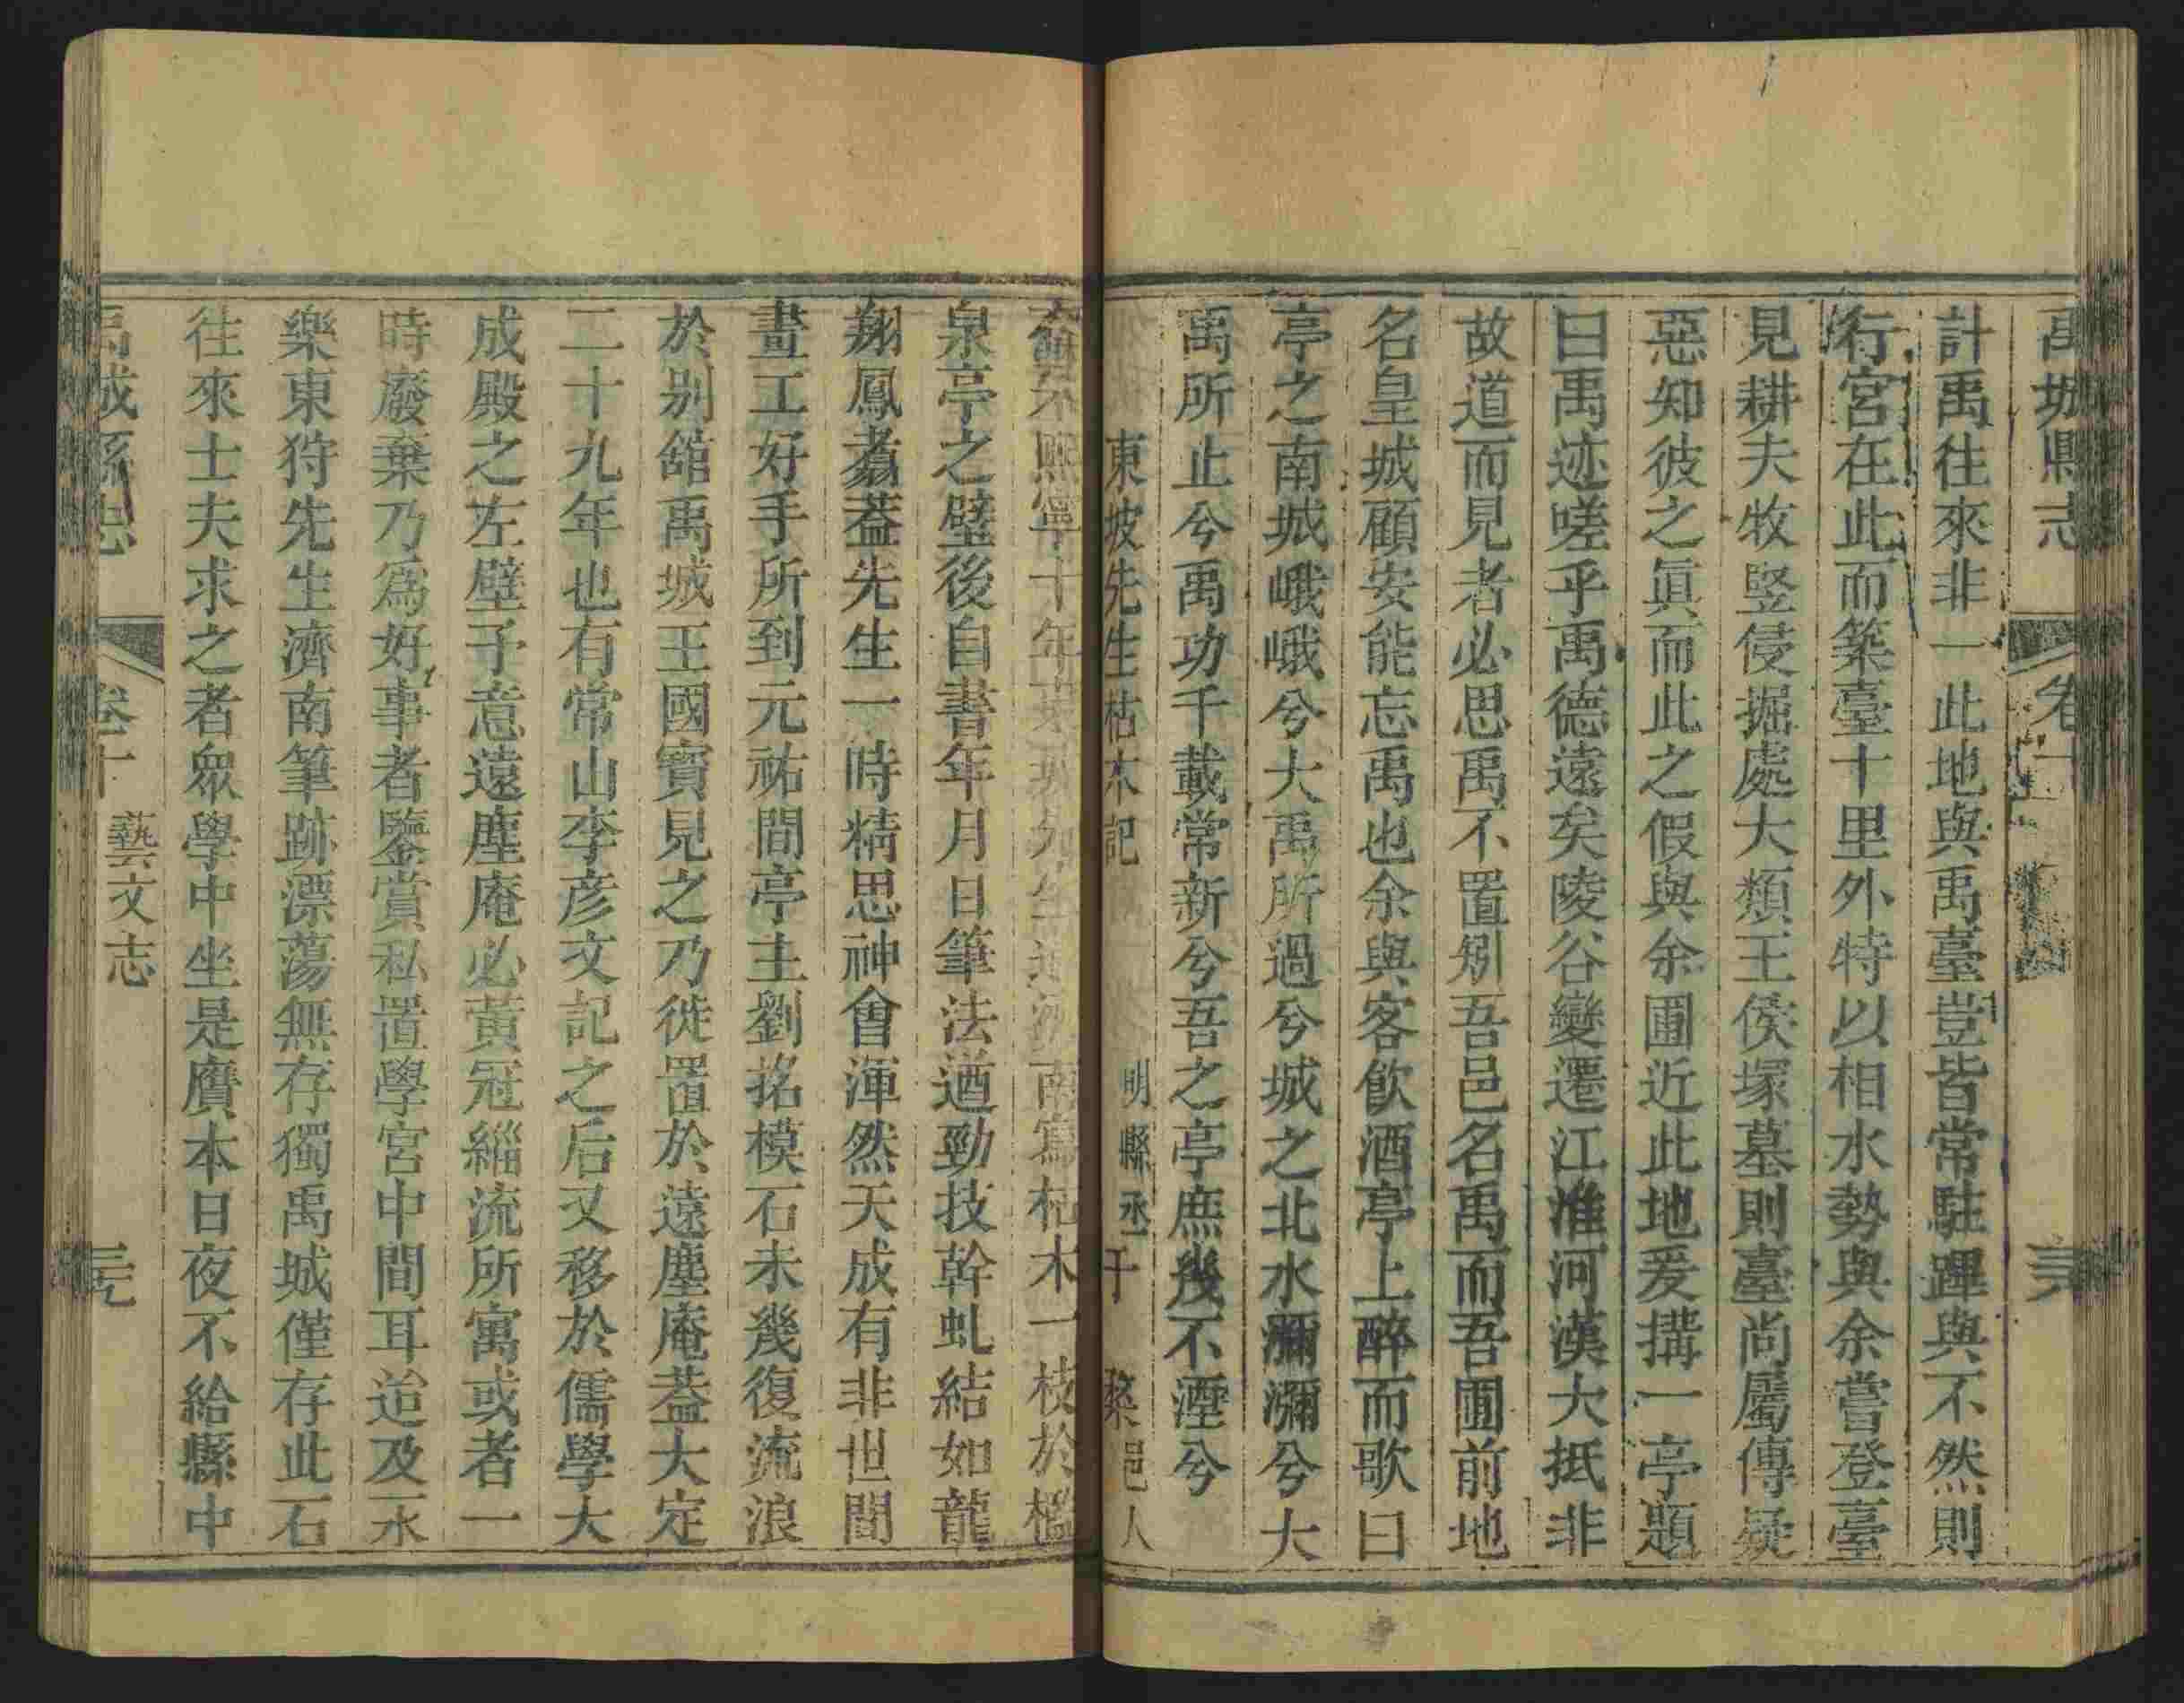 禹城縣志 卷十
計禹往來非一此地與禹臺豈皆常駐蹕與不然則
行宮在此而築臺十里外特以相水勢與余嘗登臺
見耕夫牧竪侵掘處大類王侯塚墓則臺尚屬傳疑
惡知彼之眞而此之假與余圃近此地爰搆一亭題
曰禹迹嗟乎禹德遠矣陵谷變遷江淮河漢大抵非
故道而見者必思禹不置矧吾邑名禹而吾圃前地
名皇城顧安能忘禹也余與客飲酒亭上醉而歌曰
亭之南城峨峨兮大禹所過兮城之北水瀰瀰兮大
禹所止兮禹功千載常新兮吾之亭庶幾不湮兮
東坡先生枯木記 明縣丞于 邑人
熙寧十年 南寫枯木一枝於檻
泉亭之壁後自書年月日筆法遒勁技幹虬結如龍
翔鳳翥蓋先生一時精思神會渾然天成有非世間
畫工好手所到元祐間亭主劉招模石未幾復流浪
於别舘禹城王國寶見之乃徙置於遠塵庵葢大定
二十九年也有常山李彦文記之后又移於儒學大
成殿之左壁予意遠塵庵必黃冠緇流所寓或者一
時廢棄乃爲好事者鑒賞私置學宮中間耳迨及永
樂東狩先生濟南筆跡漂蕩無存獨禹城僅存此石
往來士夫求之者眾學中坐是贋本日夜不給縣中
禹城縣志 卷十 藝文志